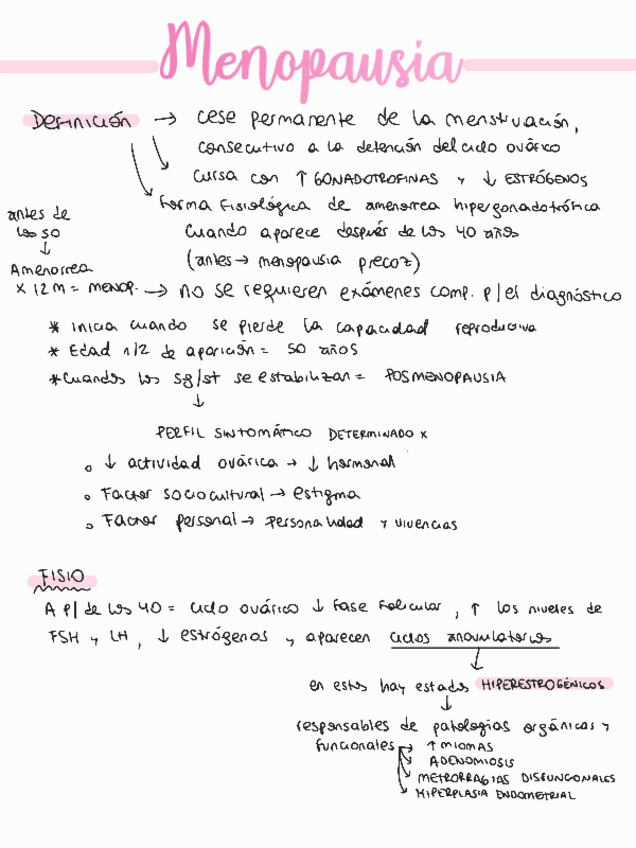 Menopausia
Definición → cese permanente de la menstruación,
consecutivo a la detención del ciclo ovárico
cursa con ↑ GONADOTROFINAS y ↓ ESTRÓGENOS
forma fisiológica de amenorrea hipergonadotrófica
cuando aparece después de los 40 años
(antes → menopausia precoz)
antes de
los 50
↓
Amenorrea
x 12 M = MENOP. → no se requieren exámenes comp. p/ el diagnóstico
* inicia cuando se pierde la capacidad reproductiva
* Edad 1/2 de aparición = 50 años
* Cuando los sg/st se estabilizan = POSMENOPAUSIA
↓
PERFIL SINTOMÁTICO DETERMINADO x
o ↓ actividad ovárica → ↓ hormonal
o Factor sociocultural → estigma
o Factor personal → personalidad y vivencias
FISIO
A p/ de los 40 = ciclo ovárico ↓ fase folicular, ↑ los niveles de
FSH y LH, ↓ estrógenos y aparecen ciclos anovulatorios
↓
en estos hay estados HIPERESTROGÉNICOS
↓
responsables de patologías orgánicas y
funcionales → ↑ MIOMAS
ADENOMIOSIS
METRORRAGIAS DISFUNCIONALES
HIPERPLASIA ENDOMETRIAL